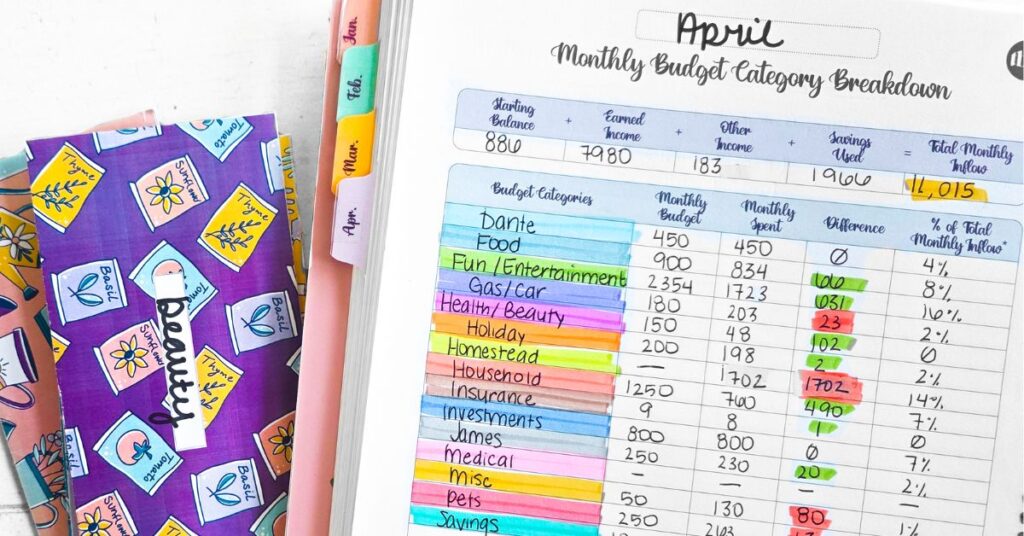 April
Monthly Budget Category Breakdown
Starting Balance + Earned Income + Other Income + Savings Used = Total Monthly Inflow
886 7980 183 1966 11,015
Budget Categories Monthly Budget Monthly Spent Difference % of Total Monthly Inflow*
Dante 450 450 Ø 4%
Food 900 834 66 8%
Fun/Entertainment 2354 1723 631 16%
Gas/car 180 203 23 2%
Health/Beauty 150 48 102 Ø
Holiday 200 198 2 2%
Homestead — 1702 1702 14%
Household 1250 760 490 7%
Insurance 9 8 1 Ø
Investments 800 800 Ø 7%
James 250 230 20 2%
Medical — — — —
Misc 50 130 80 1%
Pets 250 263
Savings
Jan.
Feb.
Mar.
Apr.
beauty
Tomato
Thyme
Sunflower
Thyme
Basil
Tomato
Basil
Sunflower
Thyme
Tomato
Basil
Basil
Sunflower
Basil
Sunflower
Tomato